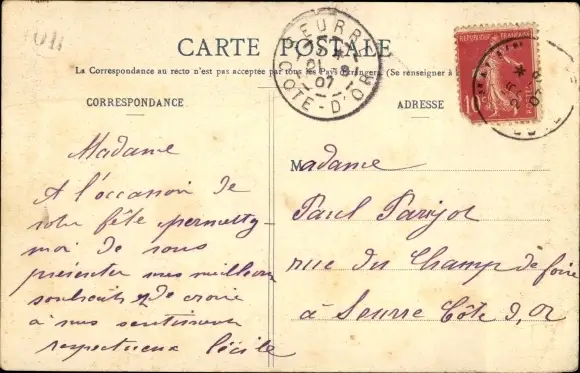 CARTE POSTALE
La Correspondance au recto n'est pas acceptée par tous les Pays étrangers. (Se renseigner à l
CORRESPONDANCE
Madame
A l'occasion de
votre fête permettez-
moi de vous
présenter mes meilleurs
souhaits & de croire
à mes sentiments
respectueux Cécile
ADRESSE
Madame
Paul Parizot
rue du Champ de foire
à Seurre Côte d,Or
EURR
21 - 8
07
COTE-D'OR
REPUBLIQUE FRANÇAISE
10
POSTES